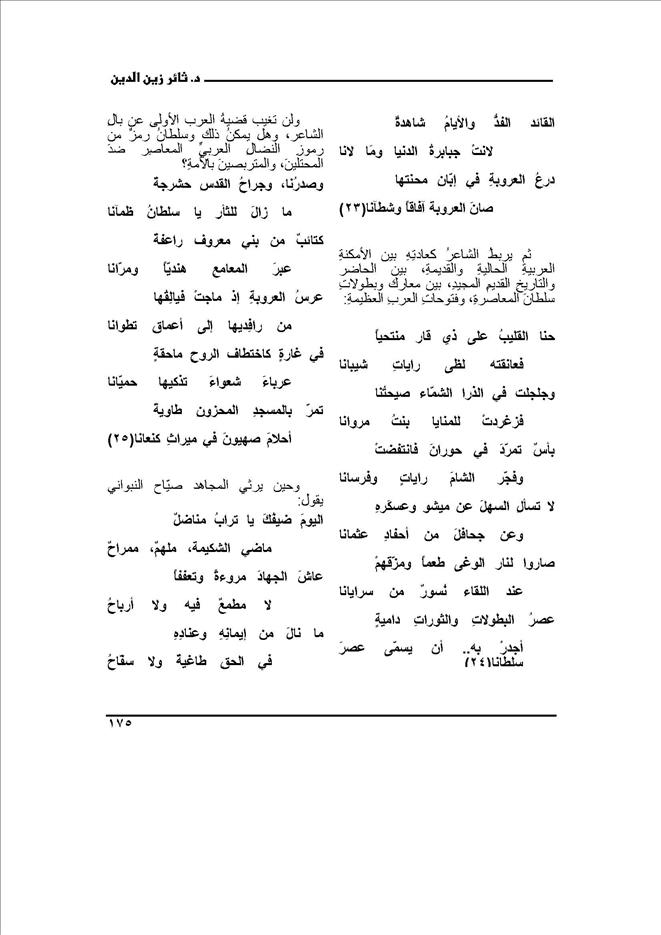 د. ثائر زين الدين
القائد الفذُّ والأيامُ شاهدةٌ
لانتْ جبابرةُ الدنيا ومَا لانا
درعُ العروبةِ في إبّان محنتها
صانَ العروبة آفاقاً وشطآنا(٢٣)
ثم يربطُ الشاعرُ كعادتِهِ بين الأمكنةِ
العربيةِ الحاليةِ والقديمةِ، بين الحاضرِ
والتاريخِ القديم المجيدِ، بين معاركَ وبطولاتِ
سلطان المعاصرةِ، وفتوحاتِ العربِ العظيمةِ:
حنا القليبُ على ذي قار منتحياً
فعانقته لظى راياتِ شيبانا
وجلجلت في الذرا الشمّاء صيحتُنا
فزغردتْ للمنايا بنتُ مروانا
بأسٌ تمرّدَ في حورانَ فانتفضتْ
وفجّر الشامَ راياتٍ وفرسانا
لا تسألِ السهلَ عن ميشو وعسكرهِ
وعن جحافلَ من أحفادِ عثمانا
صاروا لنار الوغى طعماً ومزّقهمْ
عند اللقاء نُسورٌ من سرايانا
عصرُ البطولاتِ والثوراتِ داميةٍ
أجدرْ بهِ.. أن يسمّى عصرَ
سلطانا(٢٤)
ولن تغيب قضيةُ العرب الأولى عن بالِ
الشاعر، وهل يمكنُ ذلك وسلطانُ رمزٌ من
رموزِ النضال العربيِّ المعاصرِ ضدَ
المحتلينَ، والمتربصينَ بالأمةِ؟
وصدرُنا، وجراحُ القدس حشرجة
ما زالَ للثأر يا سلطانُ ظمآنا
كتائبٌ من بني معروف راعفة
عبرَ المعامع هنديّاً ومرّانا
عرسُ العروبةِ إذ ماجتْ فيالِقُها
من رافِديها إلى أعماق تطوانا
في غارةٍ كاختطاف الروح ماحقةٍ
عرباءَ شعواءَ تذكيها حميّانا
تمرّ بالمسجدِ المحزون طاوية
أحلامَ صهيونَ في ميراثِ كنعانا(٢٥)
وحين يرثي المجاهد صيّاح النبواني
يقول:
اليومَ ضيفُكَ يا ترابُ مناضلٌ
ماضي الشكيمة، ملهمٌ، ممراحُ
عاشَ الجهادَ مروءةً وتعففاً
لا مطمعٌ فيه ولا أرباحُ
ما نالَ من إيمانِهِ وعنادِهِ
في الحق طاغية ولا سفّاحُ
١٧٥